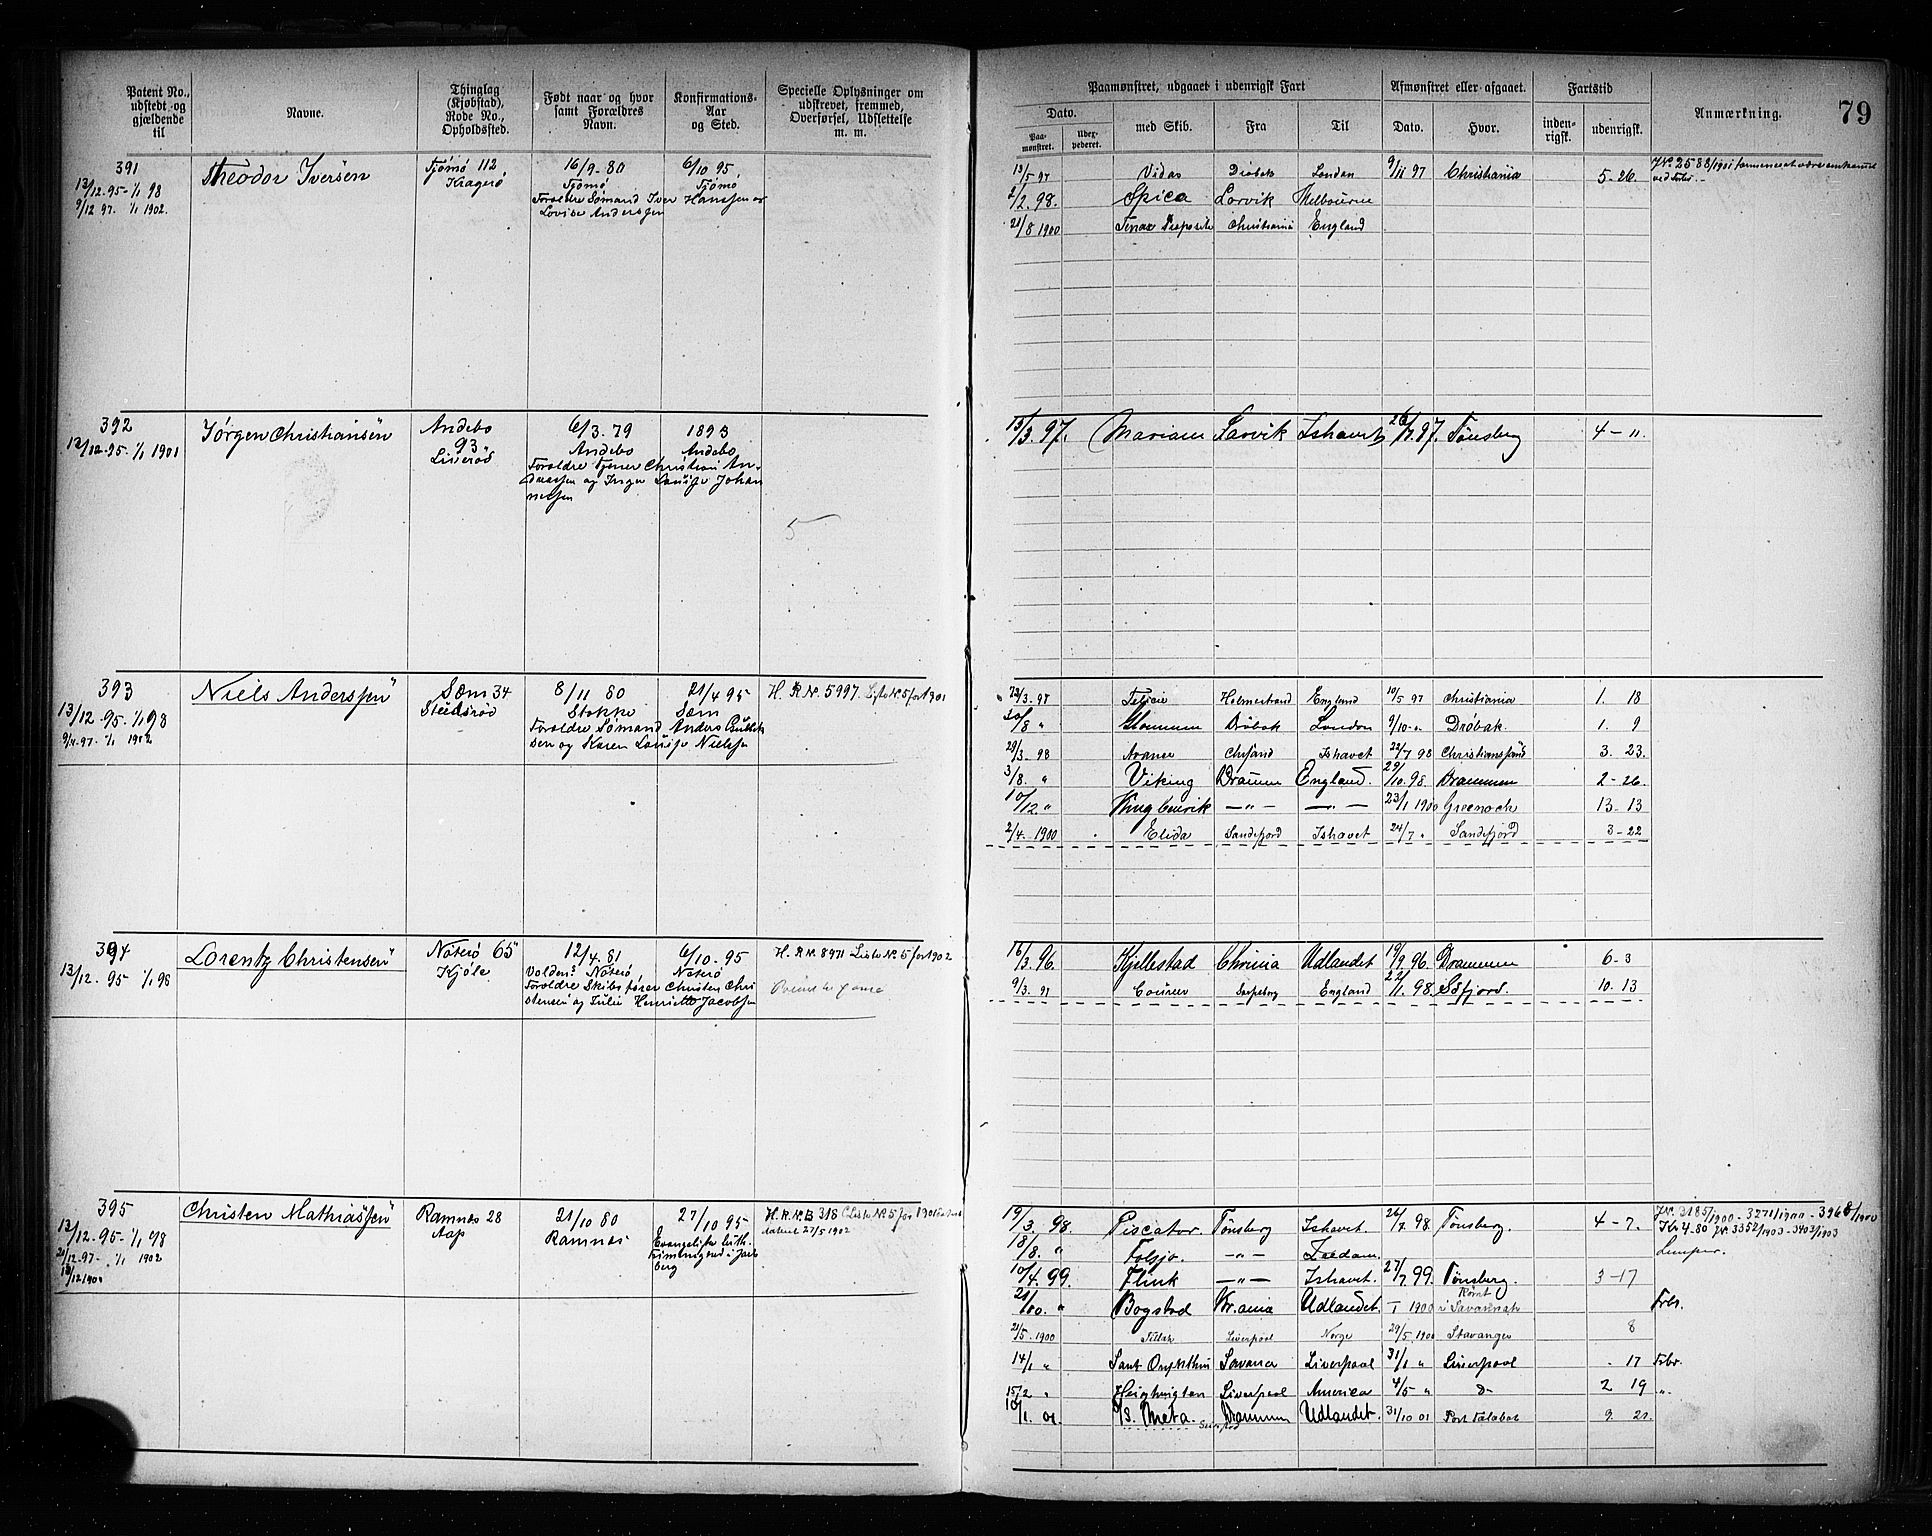 79
Patent No., udstedt og gjældende til
Navne.
Thinglag (Kjøbstad), Rode No., Opholdssted.
Født naar og hvor samt Forældres Navn.
Konfirmations- Aar og Sted.
Specielle Oplysninger om udskrevet, fremmed, Overførsel, Udslettelse m. m.
Paamønstret, udgaaet i udenrigsk Fart
Afmønstret eller afgaaet.
Fartstid
Anmærkning.
Dato.
Paa- mønstret.
Udex- pederet.
med Skib.
Fra
Til
Dato.
Hvor.
inden- rigsk.
udenrigsk.
391
13/12-95-1/1 98
9/12 97. 1/1 1902.
Theodor Iversen
Tjømø 112
Kragerø
16/9-80
Tjømø,
6/10 95
Tjømø,
Forældre Sømand Iver Hanssen og
Lovise Anderssen
13/5 97 Vidar Drøbak London 9/11 97 Christiania 5-26.
2/2.98. Spica Larvik Melbourne
21/8 1900 Tenax Christiania England
392
13/12-95-1/1 1901
Jørgen Christiansen
Andebo
93
Liverød
6/3.79
Andebo
1893
Andebo
Forældre Tjener Christian An-
dreassen og Inger Louise Johan
nessen
5
13/3.97. Mariane Larvik Ishavet 26/7.97. Tønsberg 4-"
393
13/12-95-1/1 98
9/11-97-1/1 1902
Niels Anderssen
Sæm 34
8/11 80
Stokke
21/4 95
Sæm
H. R. Nr. 5997. Liste Nr. 5 for 1901
Forældre Sømand Anders
sen og Karen Louise Nielss.
22/3.97 Holmestrand England 10/5 97 Christiania 1. 18
20/8 " Glommen Drøbak London 9/10-" Drøbak. 1. 9
29/3-98 Chrsand Ishavet 22/7 98 Christianssand 3. 23.
3/8. " Viking Drammen England. 29/10.98. Drammen 2-26.
10/12. " -"- -"- 23/1 1900 Greenock 13-13
2/4. 1900 Elida Sandefjord Ishavet 24/7 " Sandefjord 3-22
394
13/12-95 1/1 98
Lorentz Christensen
Nøterø 65
Kjøle
12/4.81
6/10-95
Nøterø
H. R. Nr. 8971 Liste Nr. 5 for 1902
Forældre Skibsfører Christen Chri
stensen og Julie Henriette Jacobsen
16/3.96. Kjellestad Chrania Udlandet 19/9.96. Drammen 6-3
9/3. 97 Courier Sarpsborg England 22/11.98. 10. 13
395
13/12-95-1/1 98
21/12-97-1/1 1902
Christen Mathiassen
Ramnes 28
Aap
21/10 80
Ramnes
27/10 95
Evangelisk luth.
Frimenighed i Jarls
berg
H.R. Nr. B 318 Liste Nr. 5 for 1901
dateret 27/5 1902
19/3. 98. Piscator. Tønsberg Ishavet. 26/7.98 Tønsberg. 4-7.
18/8. " Folsjø. -"- Zaedam.
10/4.99. Flink -"- Ishavet. 27/7 99. Tønsberg. 3-17
21/10. " Bogstad Kr.ania Udlandet. 1 1900 Rømt i Savannah Frbr.
21/5. 1900 Liverpool Norge 29/5.1900 Stavanger 8
14/1 " Savana Liverpool 31/1 " Liverpool - 17 Frbr.
15/2 " Liverpool America 4/5 " d- 2 19 ".
10/1. 01. S/S. Meta. Drammen Udlandet. 31/10 01 Port Talabot 9. 21.
JNr. 3185/1900-3271/1900-3968/1900
Kr 4.80 JNr. 3352/1903-3403/1903
Lemper.